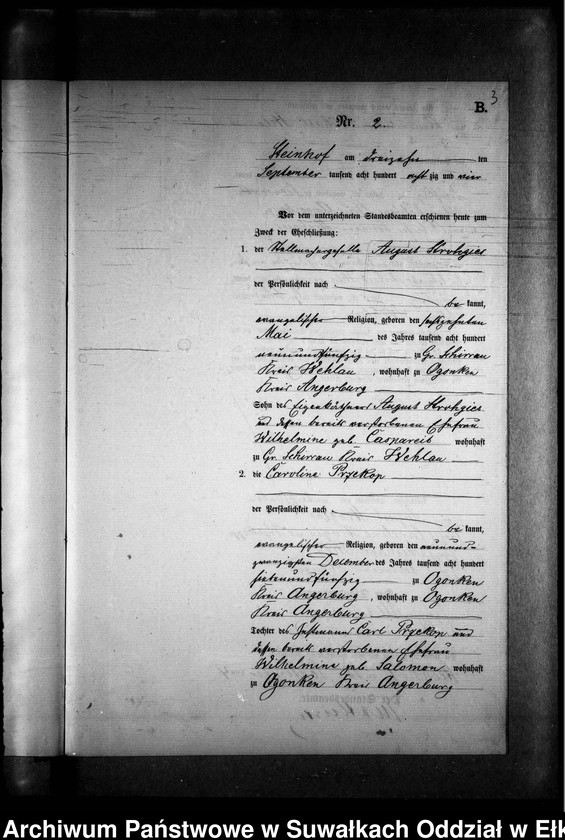 3
B.
Nr. 2.
Steinhof am dreizehn ten
September tausend acht hundert acht zig und vier
Vor dem unterzeichneten Standesbeamten erschienen heute zum
Zweck der Eheschließung:
1. der Stellmachergeselle August Strohgies
der Persönlichkeit nach
be kannt,
evangelischer Religion, geboren den sechszehnten
Mai des Jahres tausend acht hundert
neunundfünfzig zu Gr. Schirrau
Kreis Wehlau, wohnhaft zu Ogonken
Kreis Angerburg
Sohn des Eigenkäthners August Strohgies
und dessen bereits verstorbenen Ehefrau
Wilhelmine geb. Caspareit wohnhaft
zu Gr. Schirrau Kreis Wehlau
2. die Caroline Przekop
der Persönlichkeit nach
be kannt,
evangelischer Religion, geboren den neunund-
zwanzigsten December des Jahres tausend acht hundert
siebenundfünfzig zu Ogonken
Kreis Angerburg, wohnhaft zu Ogonken
Kreis Angerburg
Tochter des Instmann Carl Przekop und
dessen bereits verstorbenen Ehefrau
Wilhelmine geb. Salomon wohnhaft
zu Ogonken Kreis Angerburg
Archiwum Państwowe w Suwałkach Oddział w Ełk